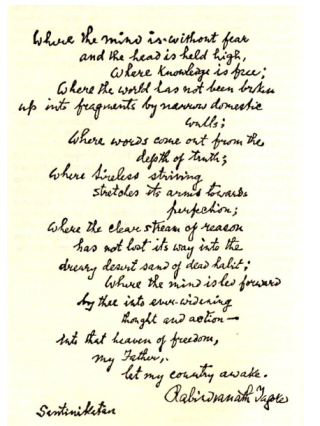 Where the mind is without fear
and the head is held high,
Where knowledge is free;
Where the world has not been broken
up into fragments by narrow domestic
walls;
Where words come out from the
depth of truth;
Where tireless striving
stretches its arms towards
perfection;
Where the clear stream of reason
has not lost its way into the
dreary desert sand of dead habit;
Where the mind is led forward
by thee into ever-widening
thought and action—
Into that heaven of freedom,
my Father,
let my country awake.
Rabindranath Tagore
Santiniketan